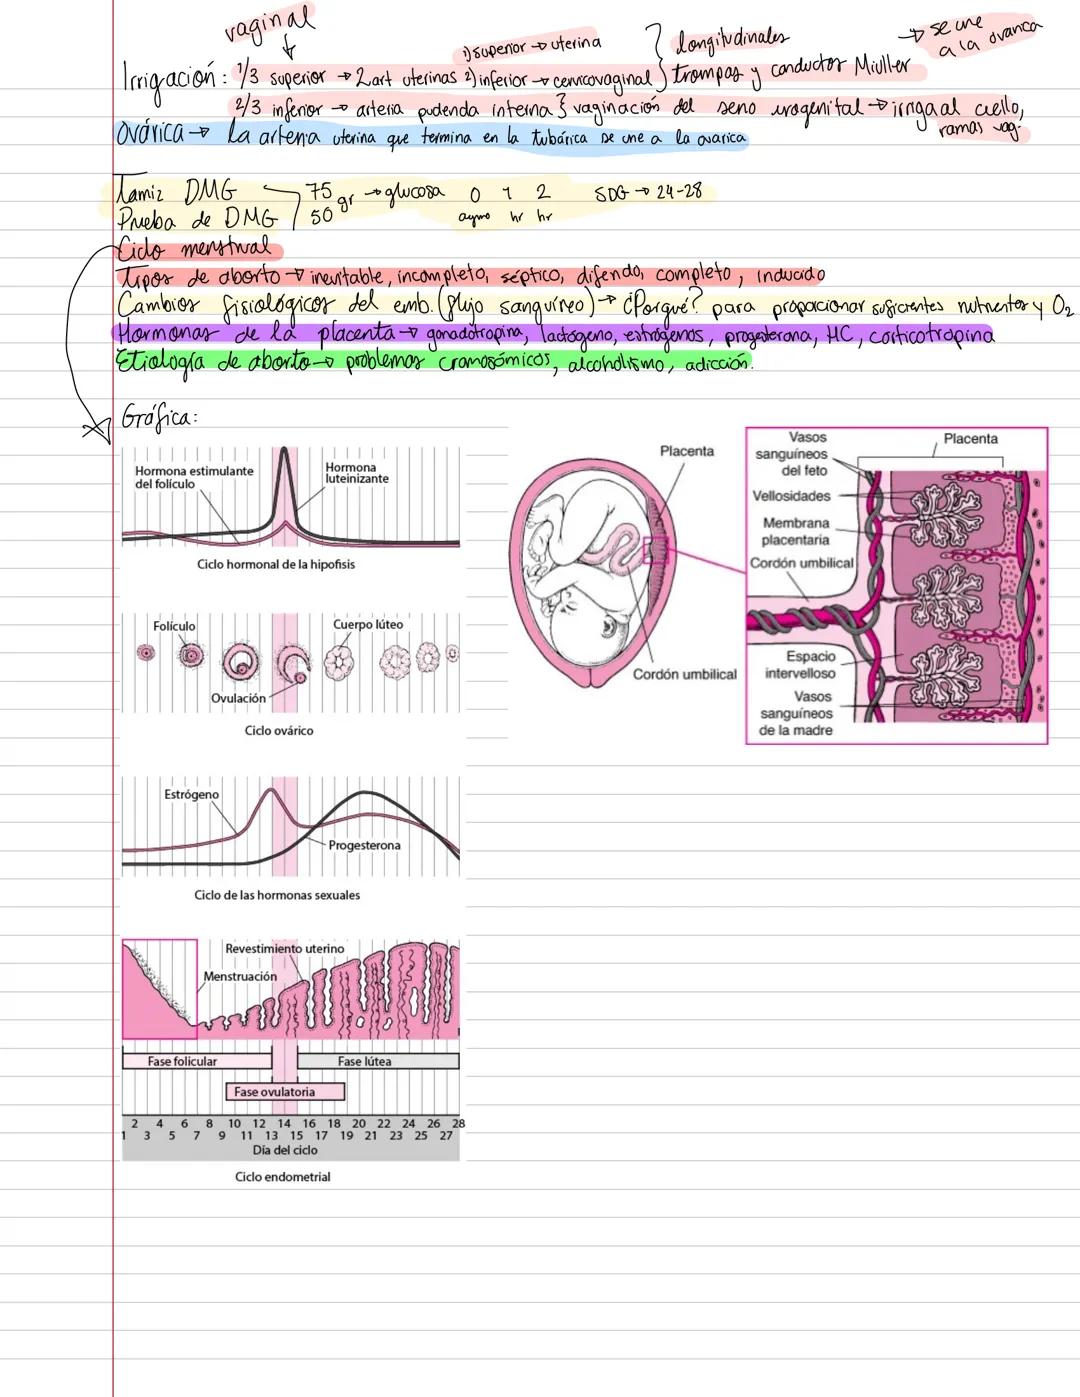 vaginal
1) superior → uterina
longitudinales
→ se une
a la ovarica
Irrigación: 1/3 superior → 2 art uterinas 2) inferior → cervicovaginal } trompas y conductos Müller
2/3 inferior → arteria pudenda interna } vaginación del seno urogenital → irriga al cuello,
ramas vag.
Ovárica → la arteria uterina que termina en la tubárica se une a la ovarica
Tamiz DMG 75 gr → glucosa 0 1 2 SDG → 24-28
Prueba de DMG 50 ayuno hr hr
Ciclo menstrual
Tipos de aborto → inevitable, incompleto, séptico, difendo, completo, inducido
Cambios fisiológicos del emb. (flujo sanguíneo) → ¿Porqué? para proporcionar suficientes nutrientes y O2
Hormonas de la placenta → gonadotropina, lactógeno, estrógenos, progesterona, HC, corticotropina
Etiología de aborto → problemas cromosómicos, alcoholismo, adicción.
Gráfica:
Hormona estimulante
del folículo
Hormona
luteinizante
Ciclo hormonal de la hipofisis
Folículo
Cuerpo lúteo
Ovulación
Ciclo ovárico
Estrógeno
Progesterona
Ciclo de las hormonas sexuales
Revestimiento uterino
Menstruación
Fase folicular
Fase lútea
Fase ovulatoria
2 4 6 8 10 12 14 16 18 20 22 24 26 28
1 3 5 7 9 11 13 15 17 19 21 23 25 27
Día del ciclo
Ciclo endometrial
Placenta
Cordón umbilical
Vasos
sanguíneos
del feto
Placenta
Vellosidades
Membrana
placentaria
Cordón umbilical
Espacio
intervelloso
Vasos
sanguíneos
de la madre